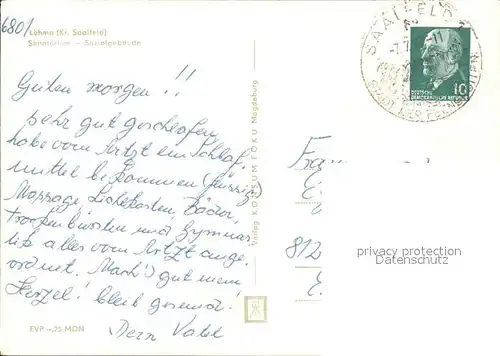 6801
Löhma (Kr. Saalfeld)
Sanatorium - Sozialgebäude
Guten morgen !!
sehr gut geschlafen,
habe vom Artzt ein Schlaf,
mittel bekommen (flüssig)
Massage, Lichtkasten, Bäder,
Trockenbürsten und Gymnas
tik alles vom Artzt ange,
ordnet. Mach's gut mein
Herzel! bleib gesund!
Dein Vatel
EVP -.25 MDN
Verlag KONSUM FOKU Magdeburg
SAALFELD
DEUTSCHE
DEMOKRATISCHE REPUBLIK
10
812
privacy protection
Datenschutz